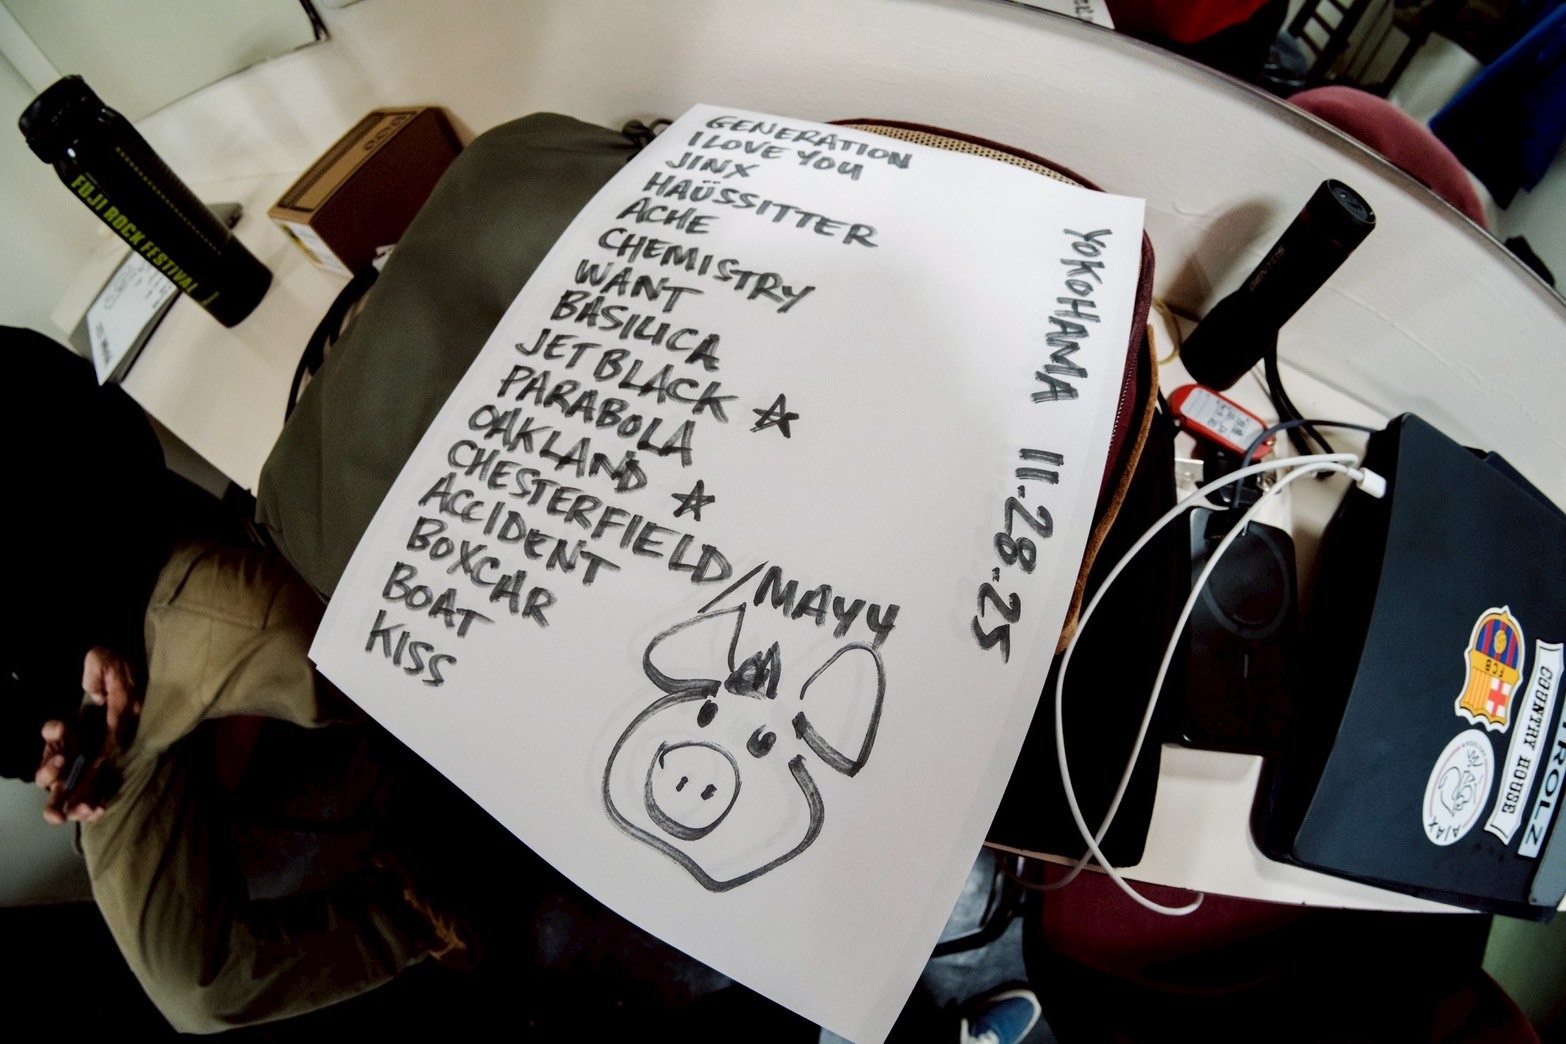 GENERATION
I LOVE YOU
JINX
HAÜSSITTER
ACHE
CHEMISTRY
WANT
BASILICA
JET BLACK ☆
PARABOLA
OAKLAND ☆
CHESTERFIELD / MAYY
ACCIDENT
BOXCAR
BOAT
KISS
YOKOHAMA 11.28.25
FUJI ROCK FESTIVAL
FCB
COUNTRY HOUSE
AJAX